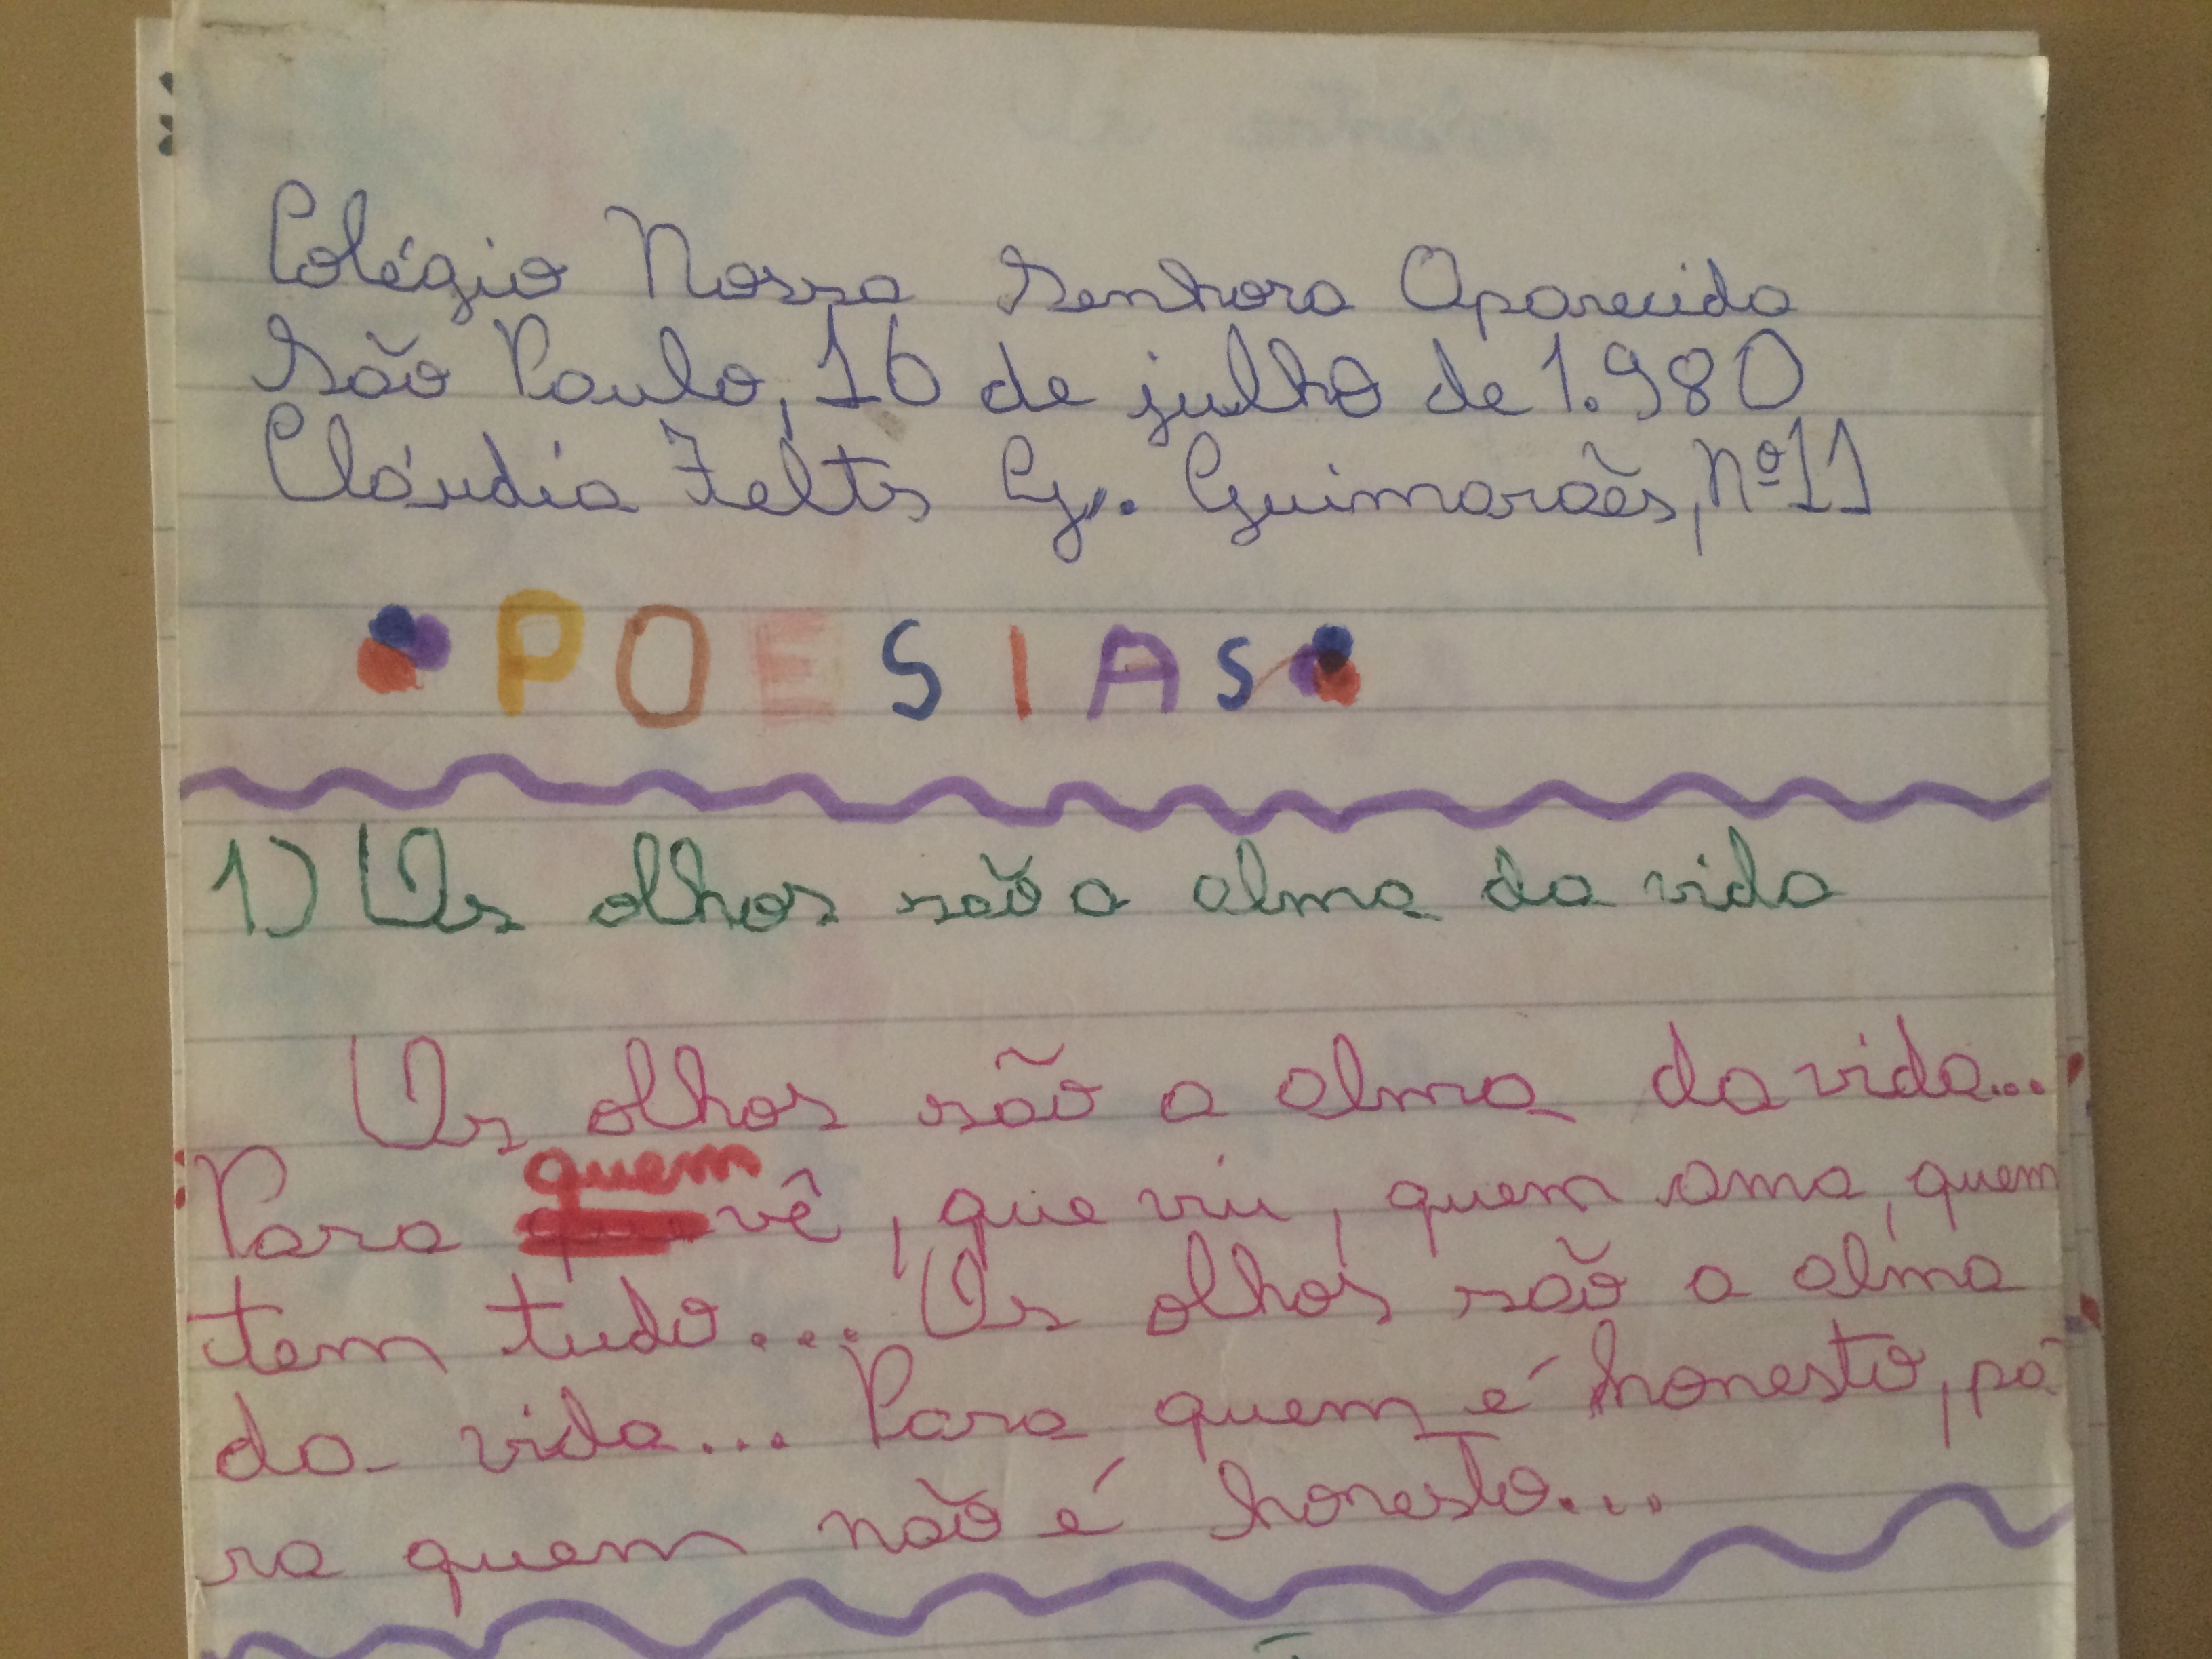 Colégio Nossa Senhora Aparecida
São Paulo, 16 de julho de 1.980
Cláudia Felts G. Guimarães, nº 11
POESIAS
1) Os olhos são a alma da vida
Os olhos são a alma da vida...
quem
Para que vê, que viu, quem ama, quem
tem tudo.... Os olhos são a alma
da vida... Para quem é honesto, pa
ra quem não é honesto...